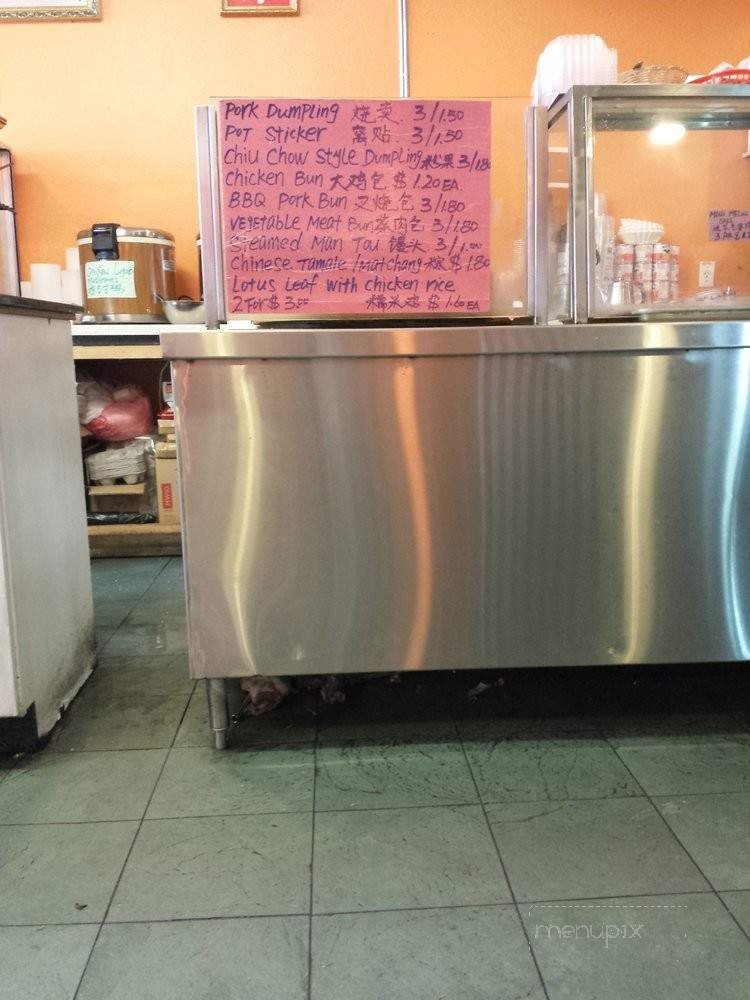 Pork Dumpling 烧卖 3/1.50
Pot Sticker 窩贴 3/1.50
Chiu Chow Style Dumpling 粉果 3/1.80
Chicken Bun 大鸡包 $1.20 EA
BBQ Pork Bun 叉烧包 3/1.80
Vegetable Meat Bun 菜肉包 3/1.80
Steamed Man Tau 馒头 3/1.00
Chinese Tamale / Mat Chang 粽 $1.80
Lotus Leaf with chicken rice
2 For $3.00 糯米鸡 $1.60 EA
menupix